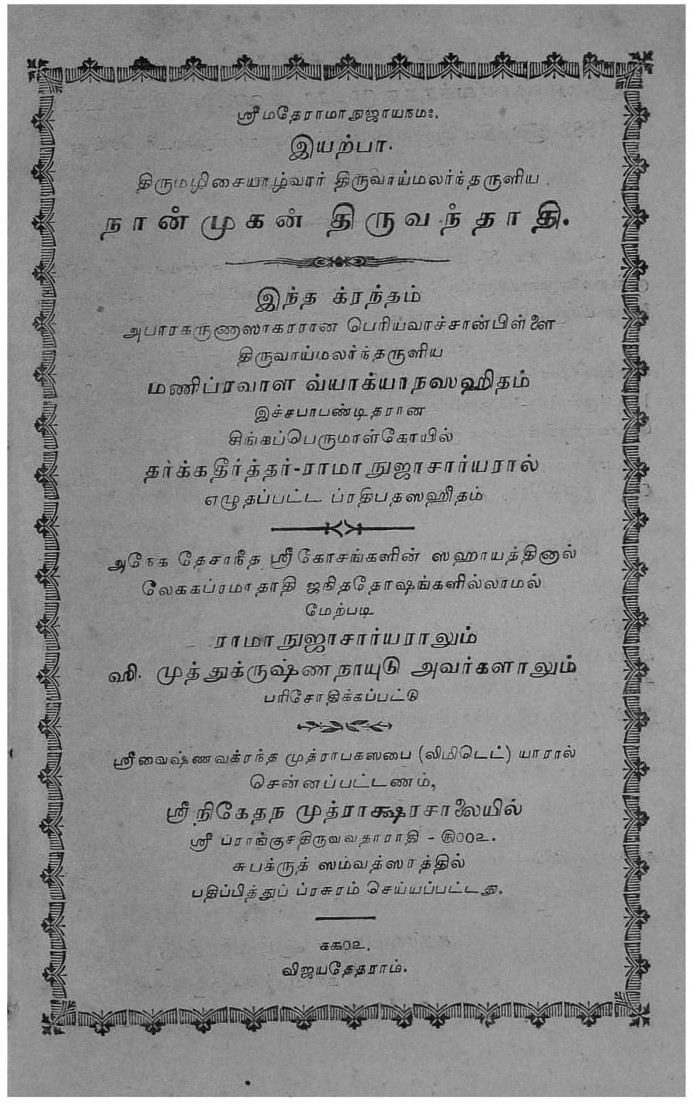 ஸ்ரீமதேராமாநுஜாயநமஃ.
இயற்பா.
திருமழிசையாழ்வார் திருவாய்மலர்ந்தருளிய
நான்முகன் திருவந்தாதி.
இந்த க்ரந்தம்
அபாரகருணாஸாகரரான பெரியவாச்சான்பிள்ளை
திருவாய்மலர்ந்தருளிய
மணிப்ரவாள வ்யாக்யாநஸஹிதம்
இச்சபாபண்டிதரான
சிங்கப்பெருமாள்கோயில்
தர்க்கதீர்த்தர்-ராமாநுஜாசார்யரால்
எழுதப்பட்ட ப்ரதிபதஸஹிதம்
அநேக தேசாநீத ஸ்ரீகோசங்களின் ஸஹாயத்தினால்
லேககப்ரமாதாதி ஜநிததோஷங்களில்லாமல்
மேற்படி
ராமாநுஜாசார்யராலும்
ஸி. முத்துக்ருஷ்ணநாயுடு அவர்களாலும்
பரிசோதிக்கப்பட்டு
ஸ்ரீவைஷ்ணவக்ரந்த முத்ராபகஸபை (லிமிடெட்) யாரால்
சென்னப்பட்டணம்,
ஸ்ரீநிகேதந முத்ராக்ஷரசாலையில்
ஸ்ரீ ப்ராங்குசதிருவவதாராதி - ௫௦௦௨.
சுபக்ருத் ஸம்வத்ஸரத்தில்
பதிப்பித்துப் ப்ரசுரம் செய்யப்பட்டது.
௧௯௦௨.
விஜயதேதராம்.